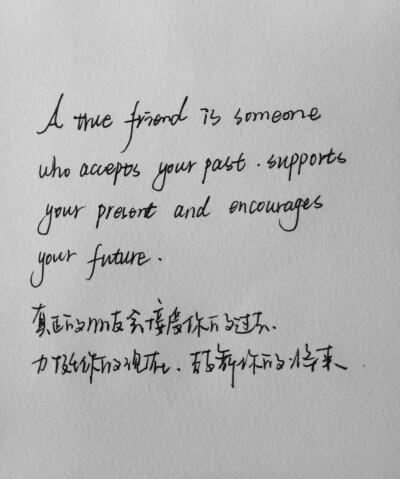 A true friend is someone
who accepts your past. supports
your present and encourages
your future.
真正的朋友会接受你的过去、
力挺你的现在、鼓舞你的将来